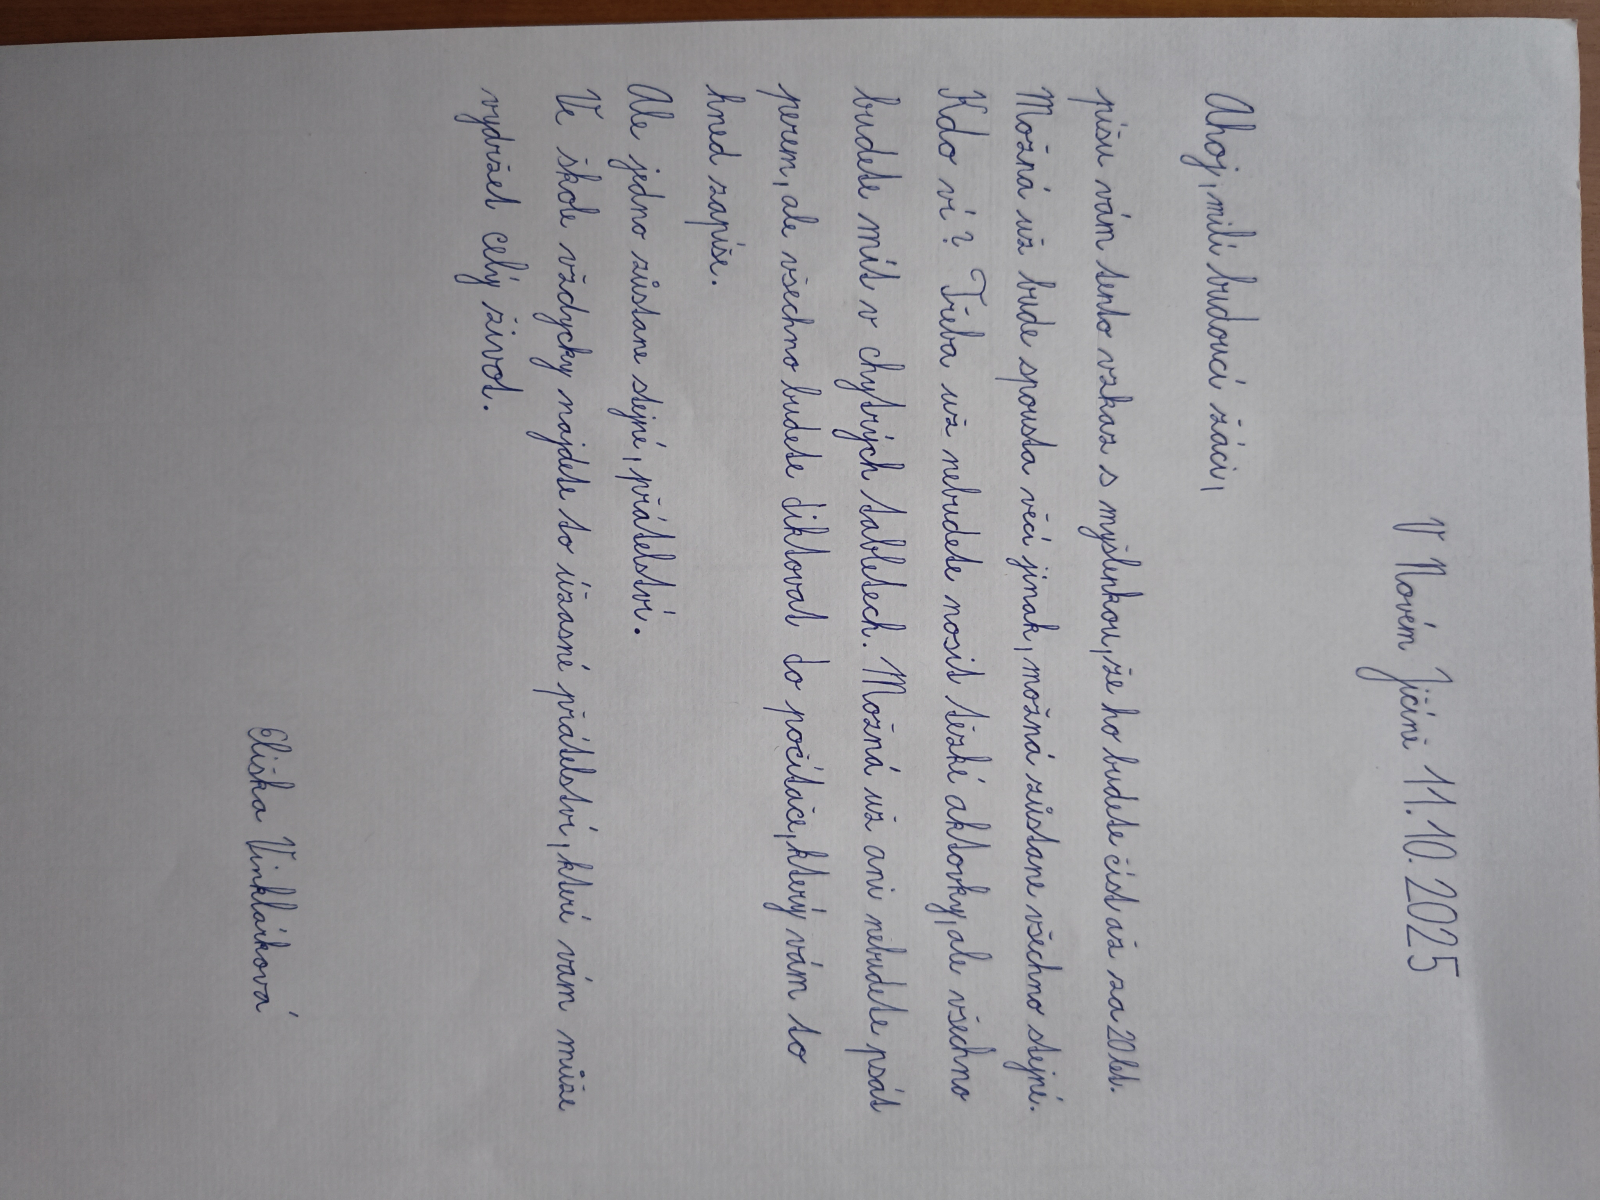 V Novém Jičíně 11. 10. 2025
Ahoj, milí budoucí žáci,
píšu vám tento vzkaz s myšlenkou, že ho budete číst až za 20 let.
Možná už bude spousta věcí jinak, možná zůstane všechno stejné.
Kdo ví? Třeba už nebudete nosit těžké aktovky, ale všechno
budete mít v chytrých tabletech. Možná už ani nebudete psát
perem, ale všechno budete diktovat do počítače, který vám to
hned zapíše.
Ale jedno zůstane stejné, přátelství.
Ve škole vždycky najdete to úžasné přátelství, které vám může
vydržet celý život.
Eliška Vinklárková